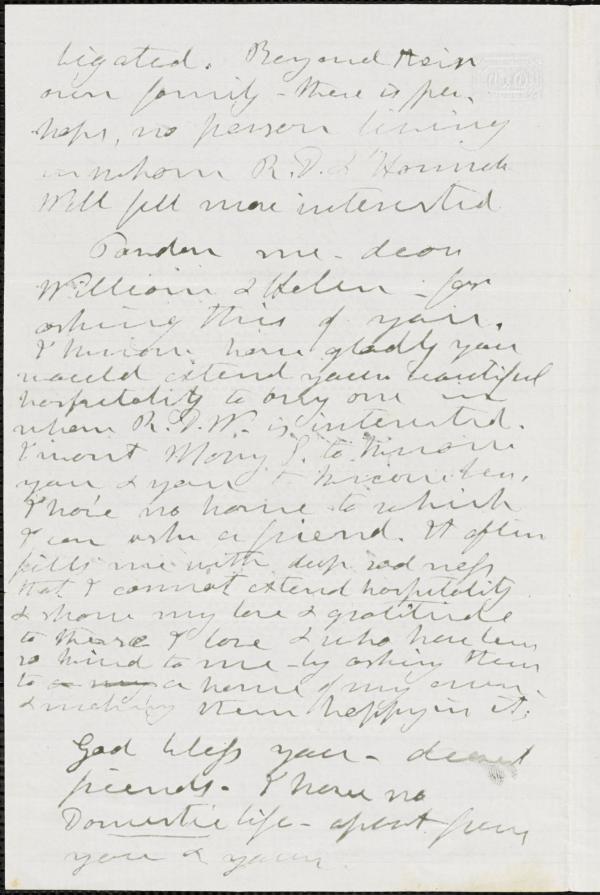 ligated. Beyond their
own family - there is per,
haps, no person living
in whom R.D. & Hannah
Will fell more interested
Pardon me - dear
William & Helen - for
asking this of you.
I know how gladly you
would extend your beautiful
hospitality to any one in
whom R.D.W. is interested.
I want Mary G. to know
you & you to know her.
I have no home to which
I can ask a friend. It often
fills me with deep sadness
that I cannot extend hospitality
& show my love & gratitude
to those I love & who have been
so kind to me - by asking them
to a home of my own,
& making them happy in it.
God bless you - dear
friends. I have no
Domestic life - apart from
you & yours.